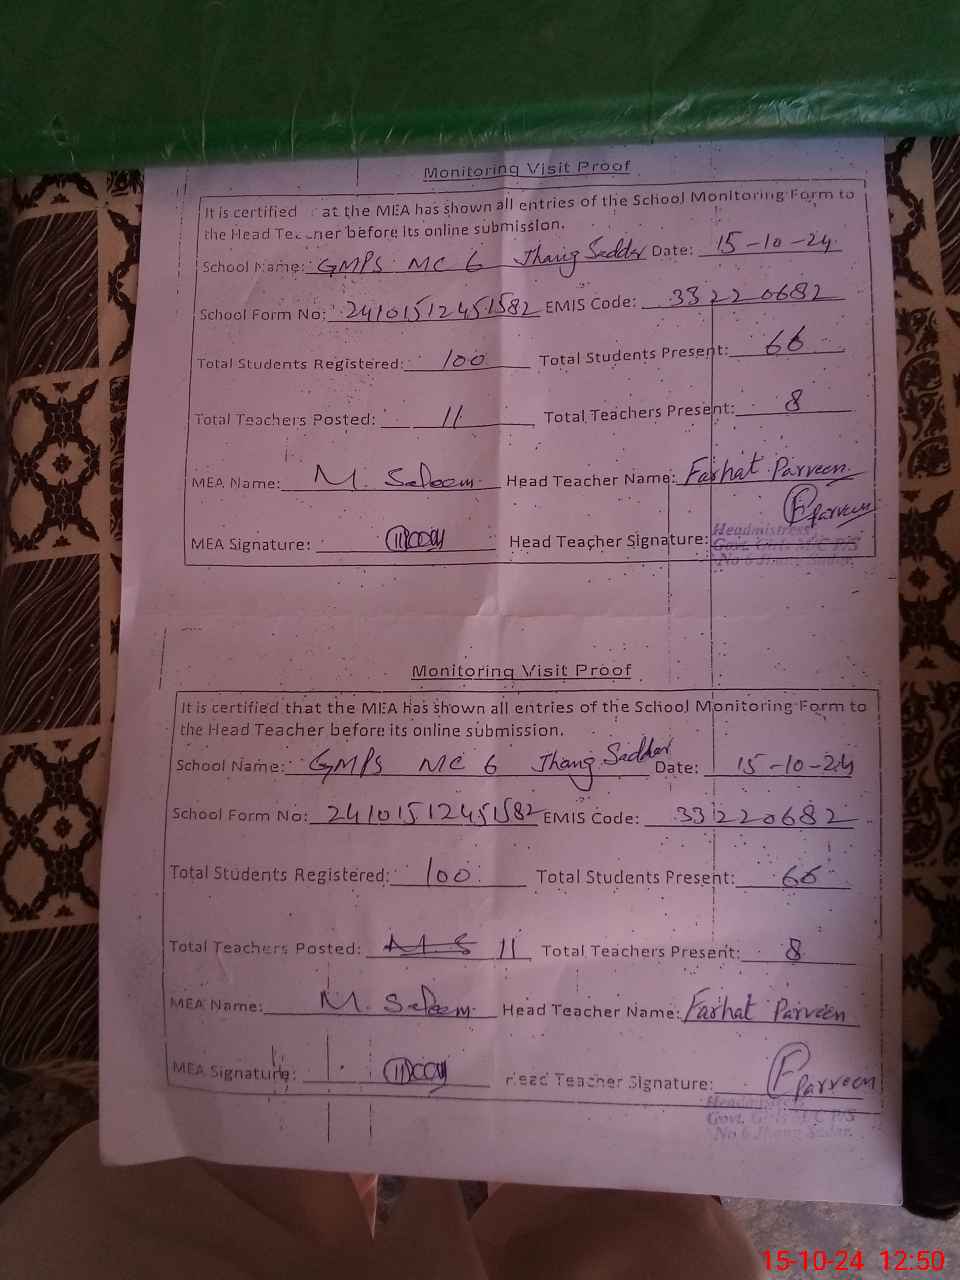 Monitoring Visit Proof
It is certified at the MEA has shown all entries of the School Monitoring Form to
the Head Teacher before its online submission.
School Name: GMPS MC 6 Jhang Saddar Date: 15-10-24
School Form No: 24101512451582 EMIS Code: 33220682
Total Students Registered: 100 Total Students Present: 66
Total Teachers Posted: 11 Total Teachers Present: 8
MEA Name: M. Saleem Head Teacher Name: Farhat Parveen
MEA Signature: Head Teacher Signature: F Parveen
Headmistress
Govt. Girls M/C P/S
No 6 Jhang Sadar.
Monitoring Visit Proof
It is certified that the MEA has shown all entries of the School Monitoring Form to
the Head Teacher before its online submission.
School Name: GMPS MC 6 Jhang Saddar Date: 15-10-24
School Form No: 24101512451582 EMIS Code: 33220682
Total Students Registered: 100 Total Students Present: 66
Total Teachers Posted: 11 Total Teachers Present: 8
MEA Name: M. Saleem Head Teacher Name: Farhat Parveen
MEA Signature: Head Teacher Signature: F Parveen
Headmistress
Govt. Girls M/C P/S
No 6 Jhang Sadar.
15-10-24 12:50